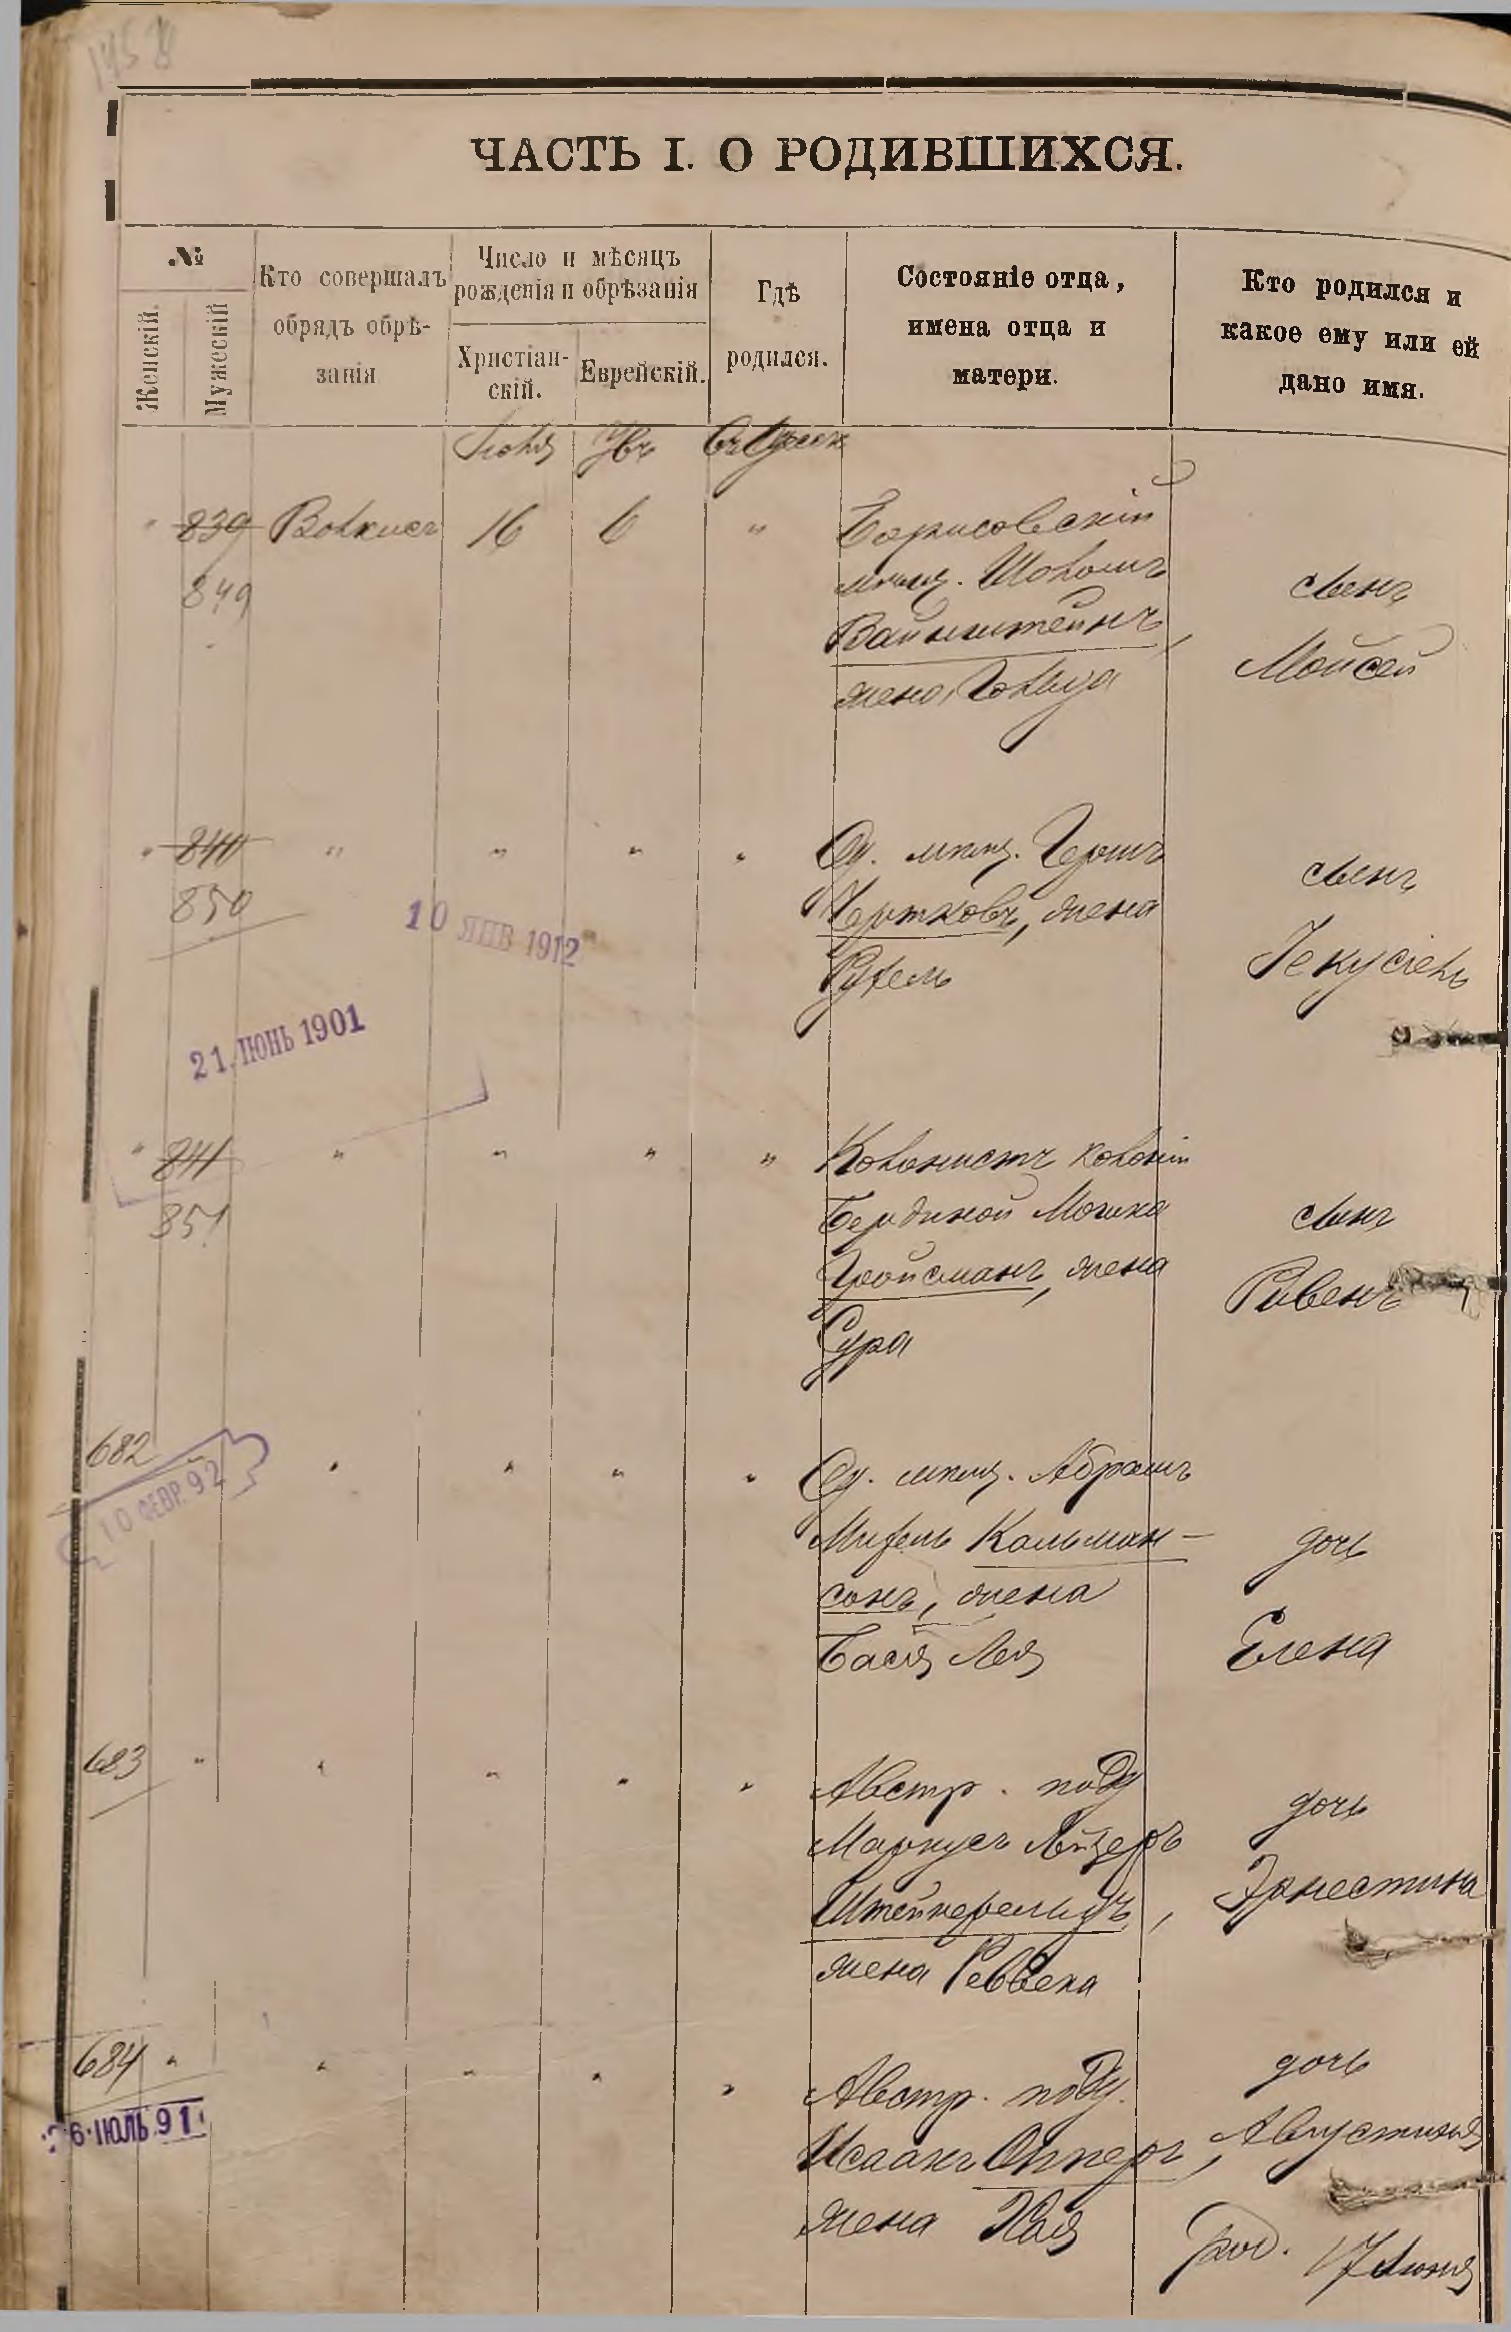 1458
ЧАСТЬ I. О РОДИВШИХСЯ.
№
Женскій.
Мужескій
Кто совершалъ
обрядъ обрѣ-
занія
Число и мѣсяцъ
рожденія и обрѣзанія
Христіан-
скій.
Еврейскій.
Гдѣ
родился.
Состояніе отца,
имена отца и
матери.
Кто родился и
какое ему или ей
дано имя.
Іюля
Въ Одессѣ
" 839 16 6 " Борисовскій
849
мѣщ. Шоломъ
Вайнштейнъ,
жена Гольда
сынъ
Мойсей
" 840 " " " " Од. мѣщ. Гершъ
850
Чертковъ, жена
Рухель
сынъ
Іекусіель
10 ЯНВ 1912
21. ІЮНЬ 1901
" 841 " " " " Колонистъ колоніи
851
Мошко
Гройсманъ, жена
Сура
сынъ
Рувенъ
682 " " " " " Од. мѣщ. Абрамъ
Михель Кальман-
сонъ, жена
Бася Лея
дочь
Елена
10 ФЕВР. 92
683 " " " " " Австр. подд
Маркусъ Лейзеръ
Штейнфельдъ,
жена Реввека
дочь
Эрнестина
684 " " " " " Австр. подд.
Исаакъ Опперъ,
жена Хая
дочь
Августина
род. 17 Іюня
26 ІЮЛЬ 91